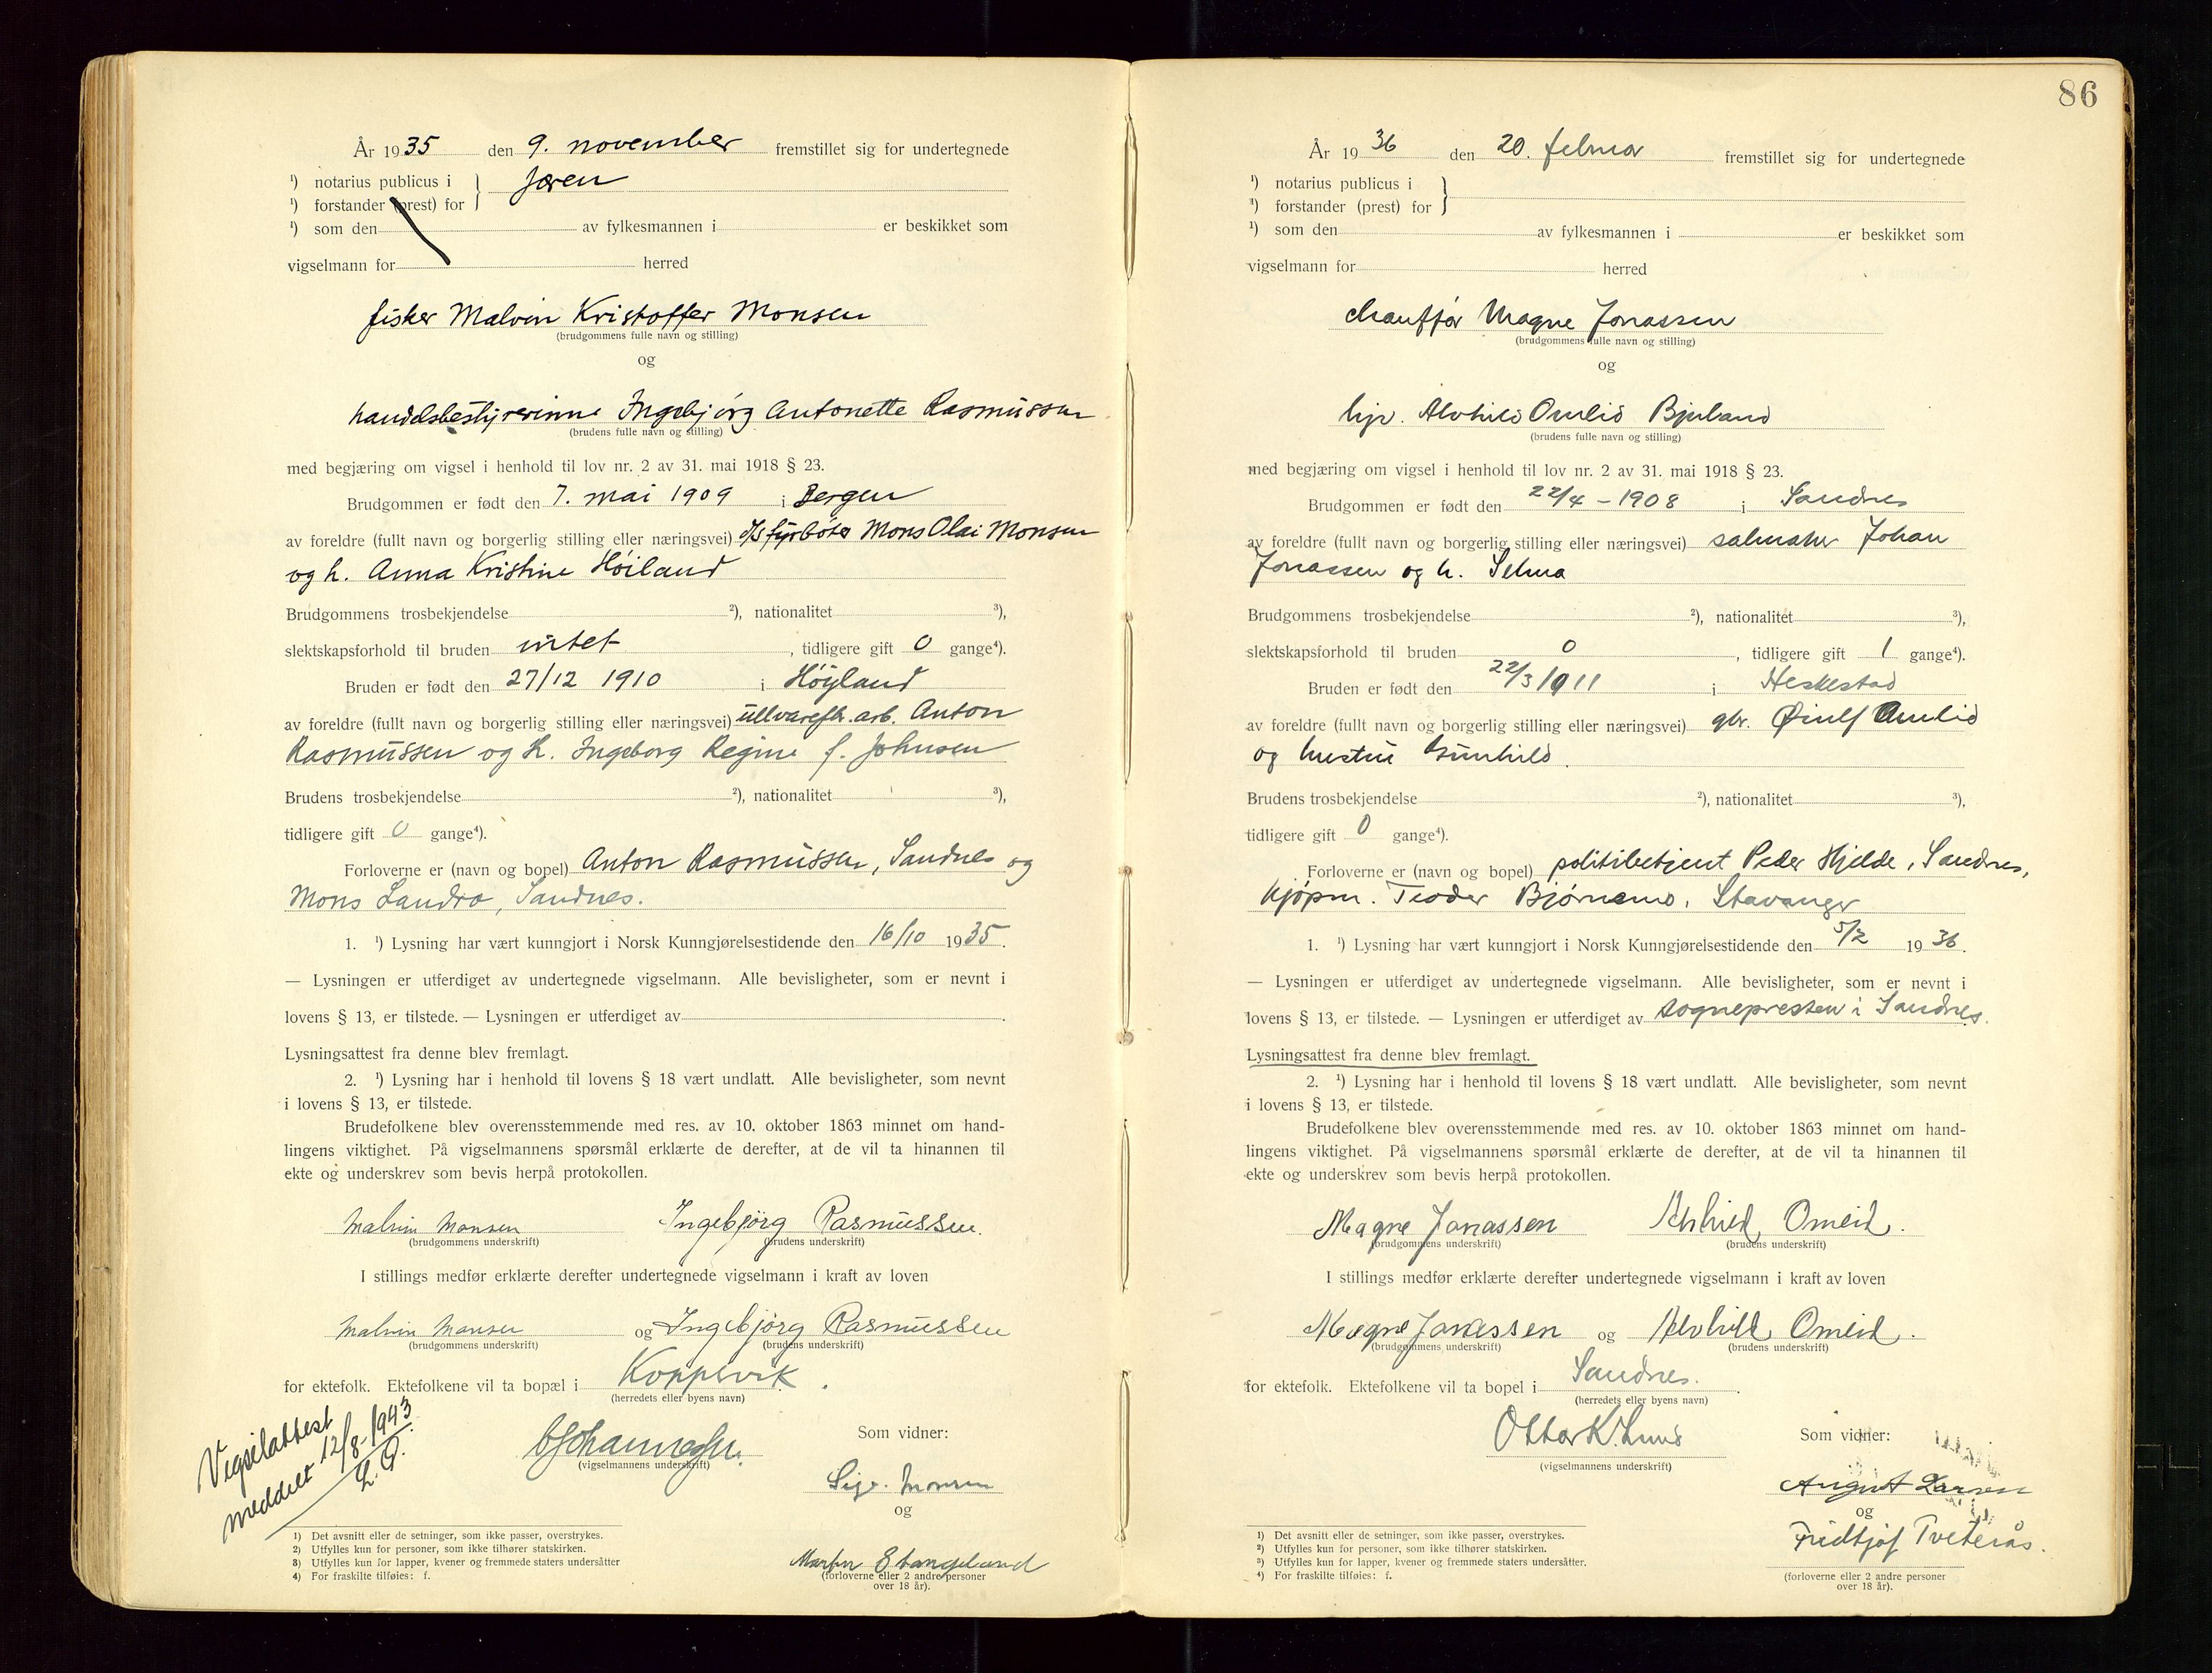 År 1935 den 9. november fremstillet sig for undertegnede
¹) notarius publicus i } Jæren
¹) forstander (prest) for
¹) som den av fylkesmannen i er beskikket som
vigselmann for herred
fisker Malvin Kristoffer Monsen
(brudgommens fulle navn og stilling)
og
handelsbestyrerinne Ingebjørg Antonette Rasmussen
(brudens fulle navn og stilling)
med begjæring om vigsel i henhold til lov nr. 2 av 31. mai 1918 § 23.
Brudgommen er født den 7. mai 1909 i Bergen
av foreldre (fullt navn og borgerlig stilling eller næringsvei) d/s fyrbøter Mons Olai Monsen
og h. Anna Kristine Høiland
Brudgommens trosbekjendelse ²), nationalitet ³),
slektskapsforhold til bruden intet, tidligere gift 0 gange⁴).
Bruden er født den 27/12 1910 i Høyland
av foreldre (fullt navn og borgerlig stilling eller næringsvei) ullvarefbr. arb. Anton
Rasmussen og h. Ingeborg Regine f. Johnsen
Brudens trosbekjendelse ²), nationalitet ³),
tidligere gift 0 gange⁴).
Forloverne er (navn og bopel) Anton Rasmussen, Sandnes og
Mons Landro, Sandnes.
1. ¹) Lysning har vært kunngjort i Norsk Kunngjørelsestidende den 16/10 1935.
— Lysningen er utferdiget av undertegnede vigselmann. Alle bevisligheter, som er nevnt i
lovens § 13, er tilstede. — Lysningen er utferdiget av .
Lysningsattest fra denne blev fremlagt.
2. ¹) Lysning har i henhold til lovens § 18 vært undlatt. Alle bevisligheter, som nevnt
i lovens § 13, er tilstede.
Brudefolkene blev overensstemmende med res. av 10. oktober 1863 minnet om hand-
lingens viktighet. På vigselmannens spørsmål erklærte de derefter, at de vil ta hinannen til
ekte og underskrev som bevis herpå protokollen.
Malvin Monsen Ingebjørg Rasmussen.
(brudgommens underskrift) (brudens underskrift)
I stillings medfør erklærte derefter undertegnede vigselmann i kraft av loven
Malvin Monsen og Ingebjørg Rasmussen
(brudgommens underskrift) (brudens underskrift)
for ektefolk. Ektefolkene vil ta bopæl i Koppervik.
(herredets eller byens navn)
Vigselattest
meddelt 12/8-1943
L. G.
(vigselmannens underskrift)
Som vidner:
Sigv. Monsen
og
Martin Stangeland
(forloverne eller 2 andre personer
over 18 år).
1) Det avsnitt eller de setninger, som ikke passer, overstrykes.
2) Utfylles kun for personer, som ikke tilhører statskirken.
3) Utfylles kun for lapper, kvener og fremmede staters undersåtter
4) For fraskilte tilføies: f.
86
År 1936 den 20. februar fremstillet sig for undertegnede
¹) notarius publicus i }
¹) forstander (prest) for
¹) som den av fylkesmannen i er beskikket som
vigselmann for herred
chauffør Magne Jonassen
(brudgommens fulle navn og stilling)
og
hjv. Alvhild Omlid Bjuland
(brudens fulle navn og stilling)
med begjæring om vigsel i henhold til lov nr. 2 av 31. mai 1918 § 23.
Brudgommen er født den 22/4 - 1908 i Sandnes
av foreldre (fullt navn og borgerlig stilling eller næringsvei) salmaker Johan
Jonassen og h. Selma
Brudgommens trosbekjendelse ²), nationalitet ³),
slektskapsforhold til bruden 0, tidligere gift 1 gange⁴).
Bruden er født den 22/3 1911 i Heskestad
av foreldre (fullt navn og borgerlig stilling eller næringsvei) gbr. Øiulf Omlid
og hustru Gunhild.
Brudens trosbekjendelse ²), nationalitet ³),
tidligere gift 0 gange⁴).
Forloverne er (navn og bopel) politibetjent Peder Hjelde, Sandnes,
kjøpm. Teodor Bjørnemo, Stavanger
1. ¹) Lysning har vært kunngjort i Norsk Kunngjørelsestidende den 5/2 1936.
— Lysningen er utferdiget av undertegnede vigselmann. Alle bevisligheter, som er nevnt i
lovens § 13, er tilstede. — Lysningen er utferdiget av sognepresten i Sandnes.
Lysningsattest fra denne blev fremlagt.
2. ¹) Lysning har i henhold til lovens § 18 vært undlatt. Alle bevisligheter, som nevnt
i lovens § 13, er tilstede.
Brudefolkene blev overensstemmende med res. av 10. oktober 1863 minnet om hand-
lingens viktighet. På vigselmannens spørsmål erklærte de derefter, at de vil ta hinannen til
ekte og underskrev som bevis herpå protokollen.
Magne Jonassen Alvhild Omlid.
(brudgommens underskrift) (brudens underskrift)
I stillings medfør erklærte derefter undertegnede vigselmann i kraft av loven
Magne Jonassen og Alvhild Omlid.
(brudgommens underskrift) (brudens underskrift)
for ektefolk. Ektefolkene vil ta bopel i Sandnes.
(herredets eller byens navn)
Ottar K. Lund
(vigselmannens underskrift)
Som vidner:
August Larsen
og
Fridtjof Tveterås.
(forloverne eller 2 andre personer
over 18 år).
1) Det avsnitt eller de setninger, som ikke passer, overstrykes.
2) Utfylles kun for personer, som ikke tilhører statskirken.
3) Utfylles kun for lapper, kvener og fremmede staters undersåtter.
4) For fraskilte tilføies: f.